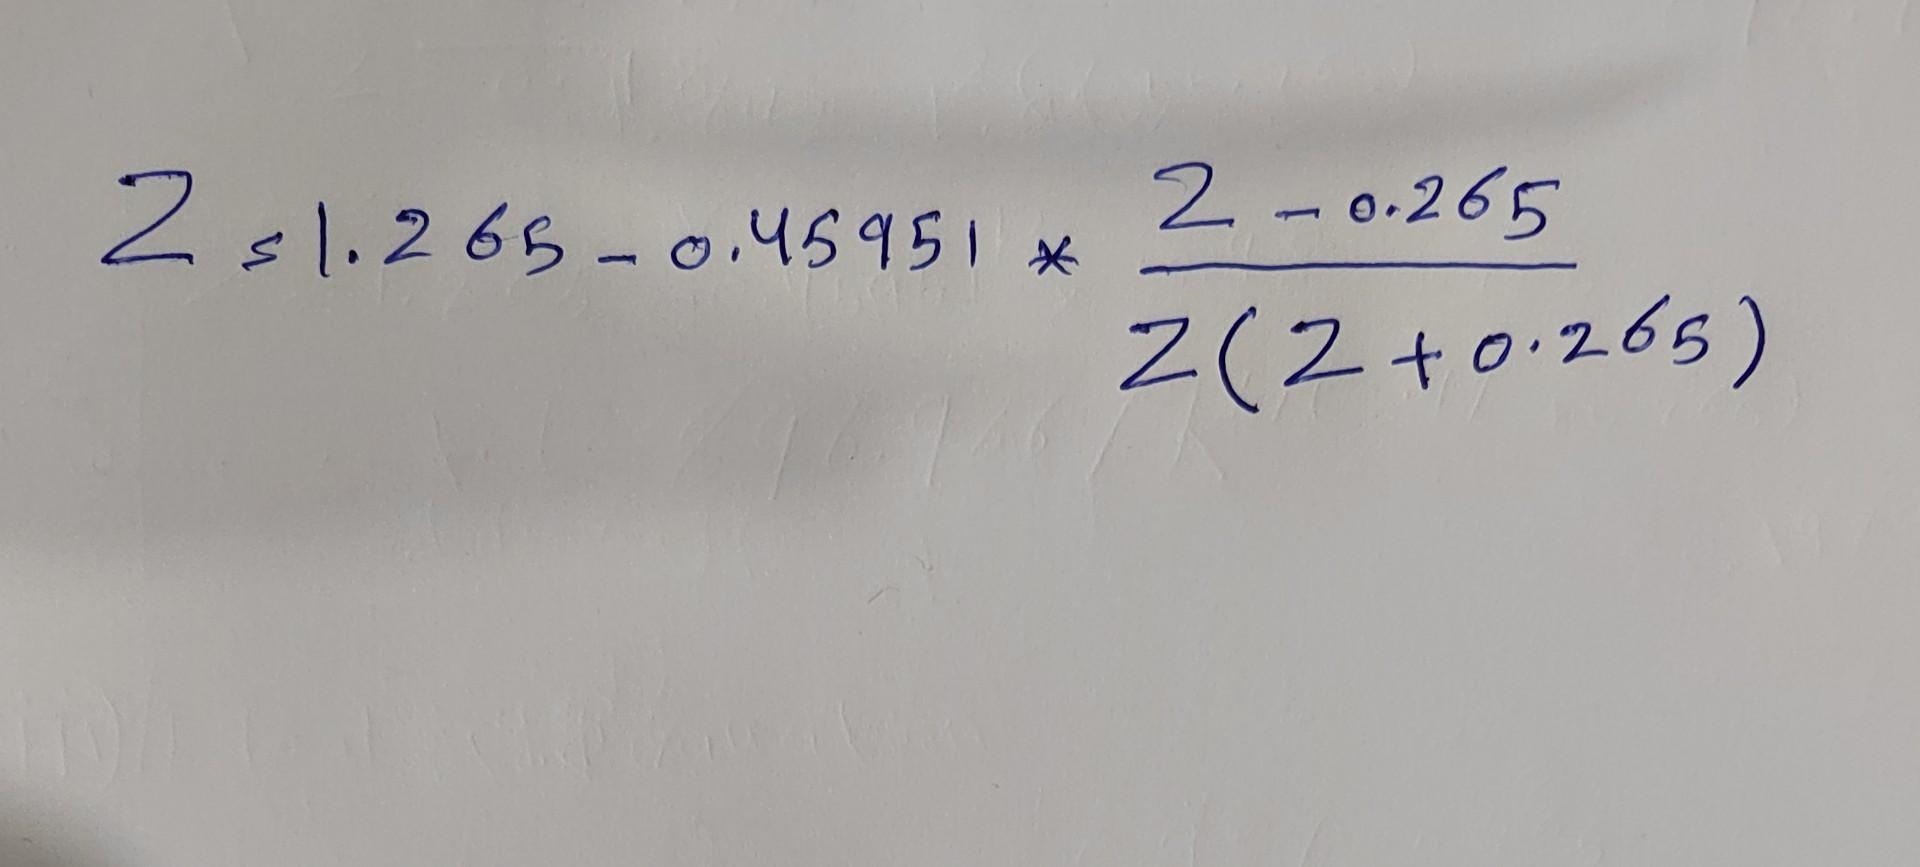 Z = 1.265 - 0.45951 * (Z - 0.265) / (Z(Z + 0.265))